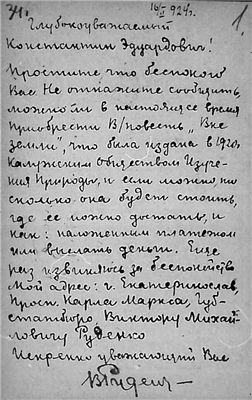 31. 16/V 1924 г. 1.
Глубокоуважаемый
Константин Эдуардович!
Простите что беспокою
Вас. Не откажите сообщить,
можно ли в настоящее время
приобрести В/повесть „Вне
земли", что была издана в 1920 г.
Калужским обществом Изуче-
ния Природы, и если можно, то
сколько она будет стоить,
где ее можно достать, и
как: наложенным платежом
или выслать деньги. Еще
раз извиняюсь за беспокойство
Мой адрес: г. Екатеринослав,
Просп. Карла Маркса, Губ-
статбюро, Виктору Михай-
ловичу Руденко
Искренно уважающий Вас